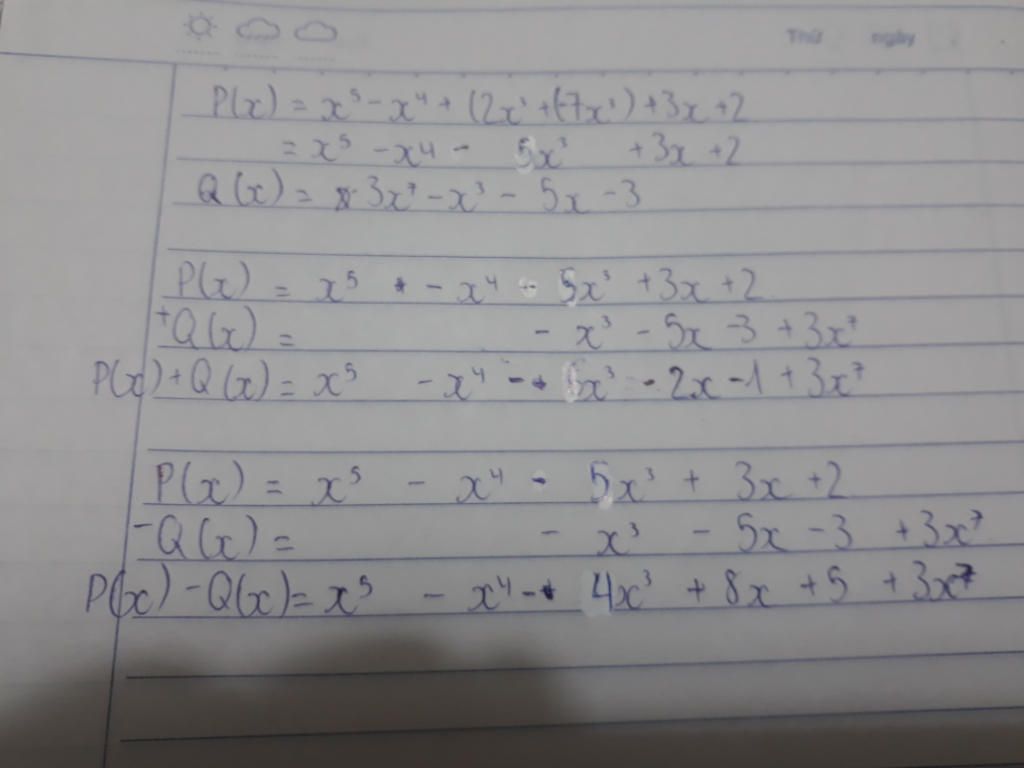 Thứ ngày
P(x) = x⁵ - x⁴ + (2x³ + (-7x³) + 3x + 2
= x⁵ - x⁴ - 5x³ + 3x + 2
Q(x) = 3x⁷ - x³ - 5x - 3
P(x) = x⁵ - x⁴ - 5x³ + 3x + 2
+ Q(x) = - x³ - 5x - 3 + 3x⁷
P(x) + Q(x) = x⁵ - x⁴ - 6x³ - 2x - 1 + 3x⁷
P(x) = x⁵ - x⁴ - 5x³ + 3x + 2
- Q(x) = - x³ - 5x - 3 + 3x⁷
P(x) - Q(x) = x⁵ - x⁴ - 4x³ + 8x + 5 + 3x⁷